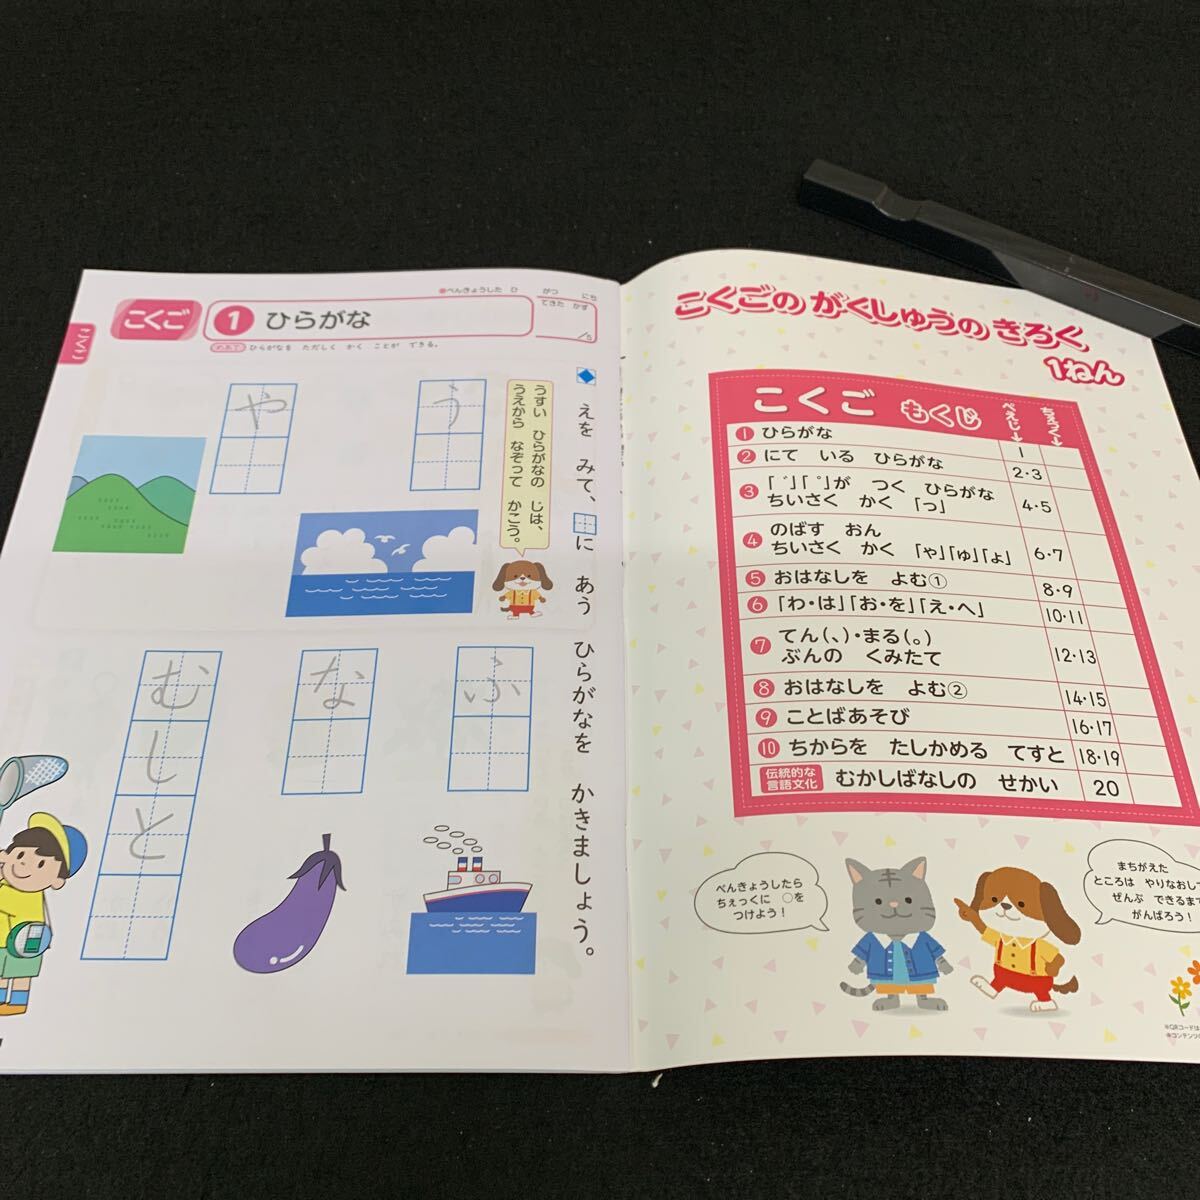 こくご
べんきょうした ひ がつ にち
こくご
1 ひらがな
できた かず
/5
めあて ひらがなを ただしく かく ことが できる。
えを みて、に あう ひらがなを かきましょう。
うすい ひらがなの じは、
うえから なぞって かこう。
う
や
ふ
な
むしと
こくごの がくしゅうの きろく
1ねん
こくご もくじ
ぺえじ→
ちぇっく→
1 ひらがな 1
2 にて いる ひらがな 2・3
3 「゛」「゜」が つく ひらがな
ちいさく かく 「つ」 4・5
4 のばす おん
ちいさく かく 「や」「ゆ」「よ」 6・7
5 おはなしを よむ① 8・9
6 「わ・は」「お・を」「え・へ」 10・11
7 てん(、)・まる(。)
ぶんの くみたて 12・13
8 おはなしを よむ② 14・15
9 ことばあそび 16・17
10 ちからを たしかめる てすと 18・19
伝統的な
言語文化
むかしばなしの せかい 20
べんきょうしたら
ちぇっくに ○を
つけよう！
まちがえた
ところは やりなおし
ぜんぶ できるま
がんばろう！
※QRコードは
※コンテンツ